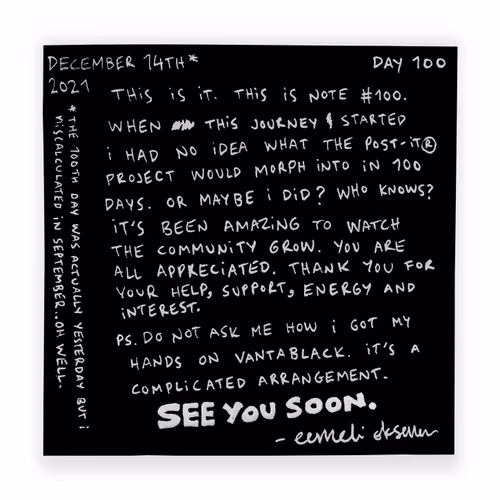 DECEMBER 14TH*
2021
DAY 100
THIS iS iT. THiS iS NOTE #100.
WHEN THiS JOURNEY STARTED
i HAD NO iDEA WHAT THE POST-iT®
PROJECT WOULD MORPH iNTO iN 100
DAYS. OR MAYBE i DiD? WHO KNOWS?
iT'S BEEN AMAZiNG TO WATCH
THE COMMUNiTY GROW. YOU ARE
ALL APPRECiATED. THANK YOU FOR
YOUR HELP, SUPPORT, ENERGY AND
iNTEREST.
PS. DO NOT ASK ME HOW i GOT MY
HANDS ON VANTABLACK. iT'S A
COMPLiCATED ARRANGEMENT.
SEE YOU SOON.
*THE 100TH DAY WAS ACTUALLY YESTERDAY BUT i
MiSCALCULATED iN SEPTEMBER.. OH WELL.